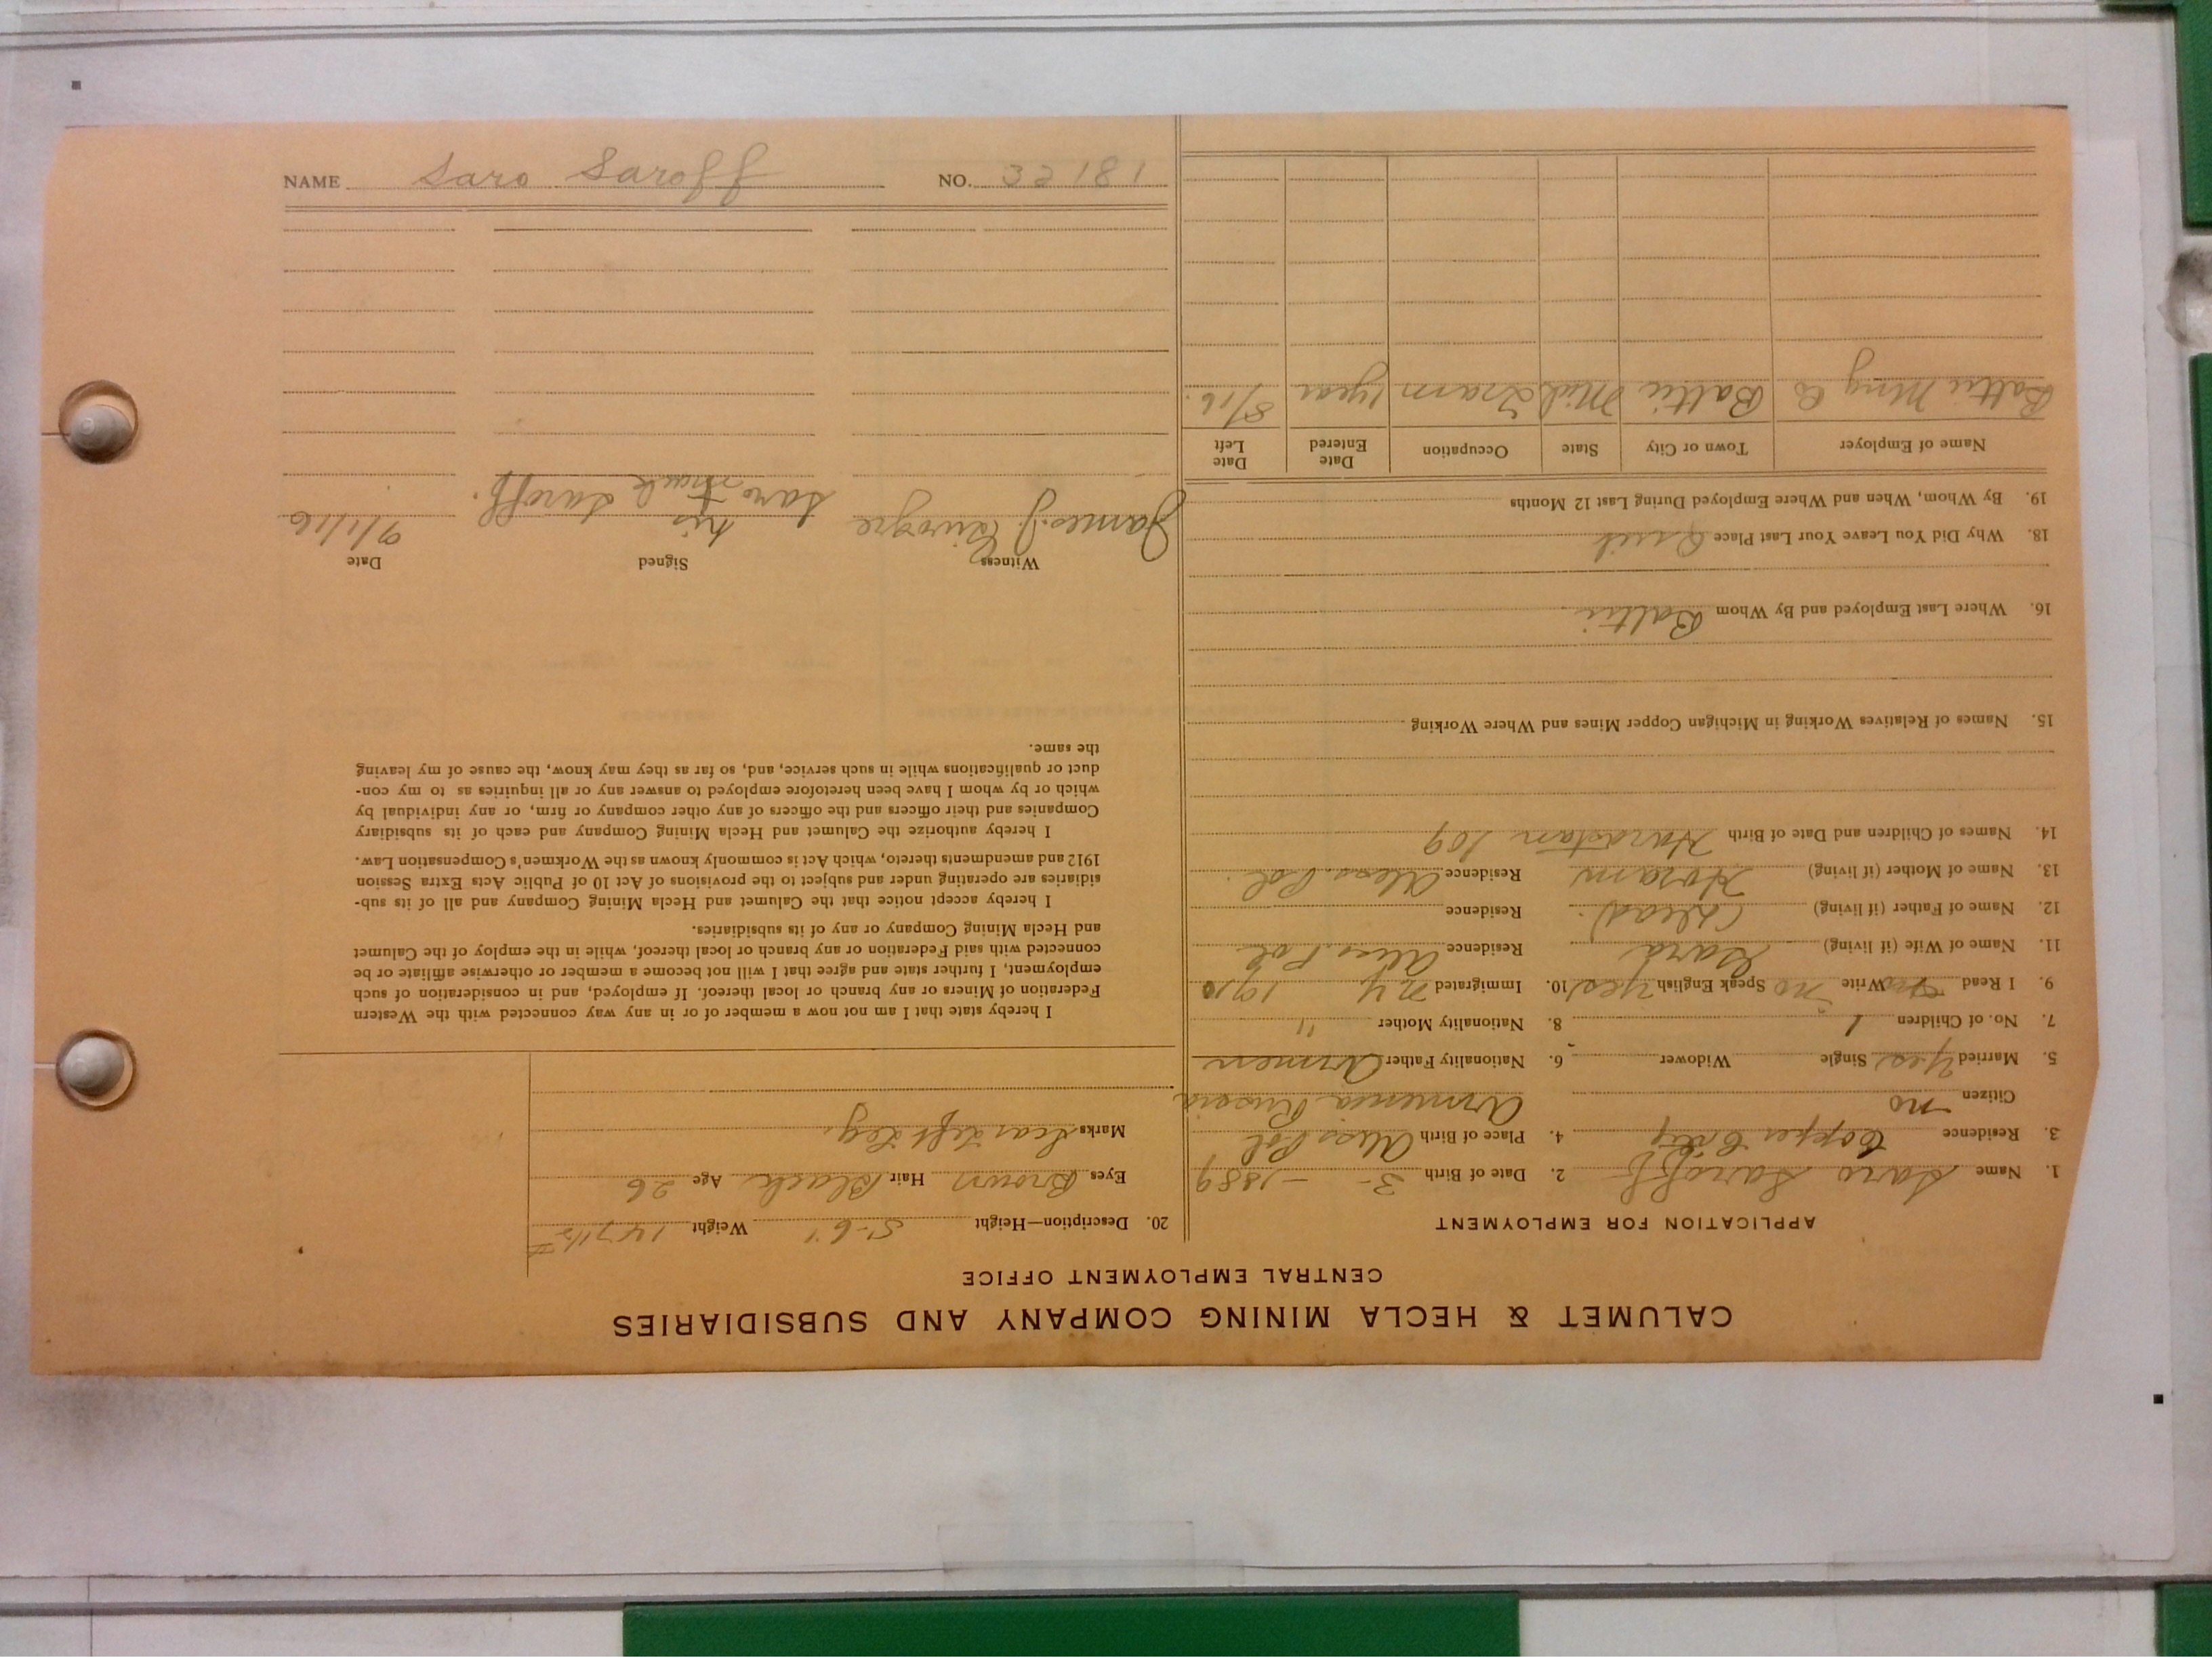 CALUMET & HECLA MINING COMPANY AND SUBSIDIARIES
CENTRAL EMPLOYMENT OFFICE
APPLICATION FOR EMPLOYMENT
1. Name Saro Saroff 2. Date of Birth 3- -1889
3. Residence Copper City 4. Place of Birth Alex Pol
Citizen no Armenia Russia
5. Married Yes Single Widower 6. Nationality Father Armen
7. No. of Children 1 8. Nationality Mother "
9. I Read Write no Speak English Yes 10. Immigrated N Y 1910
11. Name of Wife (if living) Sara Residence Alex. Pol
12. Name of Father (if living) (Dead) Residence
13. Name of Mother (if living) Residence Alex. Pol.
14. Names of Children and Date of Birth
15. Names of Relatives Working in Michigan Copper Mines and Where Working
16. Where Last Employed and By Whom Baltic
18. Why Did You Leave Your Last Place Quit
19. By Whom, When and Where Employed During Last 12 Months
Name of Employer Town or City State Occupation Date Entered Date Left
Baltic Mng Co Baltic Mich Tram 1 year 8/16.
20. Description—Height 5-6" Weight 147 1/2 #
Eyes Brown Hair Black Age 26
Marks Scar Left Leg.
I hereby state that I am not now a member of or in any way connected with the Western
Federation of Miners or any branch or local thereof. If employed, and in consideration of such
employment, I further state and agree that I will not become a member or otherwise affiliate or be
connected with said Federation or any branch or local thereof, while in the employ of the Calumet
and Hecla Mining Company or any of its subsidiaries.
I hereby accept notice that the Calumet and Hecla Mining Company and all of its sub-
sidiaries are operating under and subject to the provisions of Act 10 of Public Acts Extra Session
1912 and amendments thereto, which Act is commonly known as the Workmen's Compensation Law.
I hereby authorize the Calumet and Hecla Mining Company and each of its subsidiary
Companies and their officers and the officers of any other company or firm, or any individual by
which or by whom I have been heretofore employed to answer any or all inquiries as to my con-
duct or qualifications while in such service, and, so far as they may know, the cause of my leaving
the same.
Witness Signed Date
James J. his 9/1/16
Saro + Saroff.
mark
NAME Saro Saroff NO. 32181